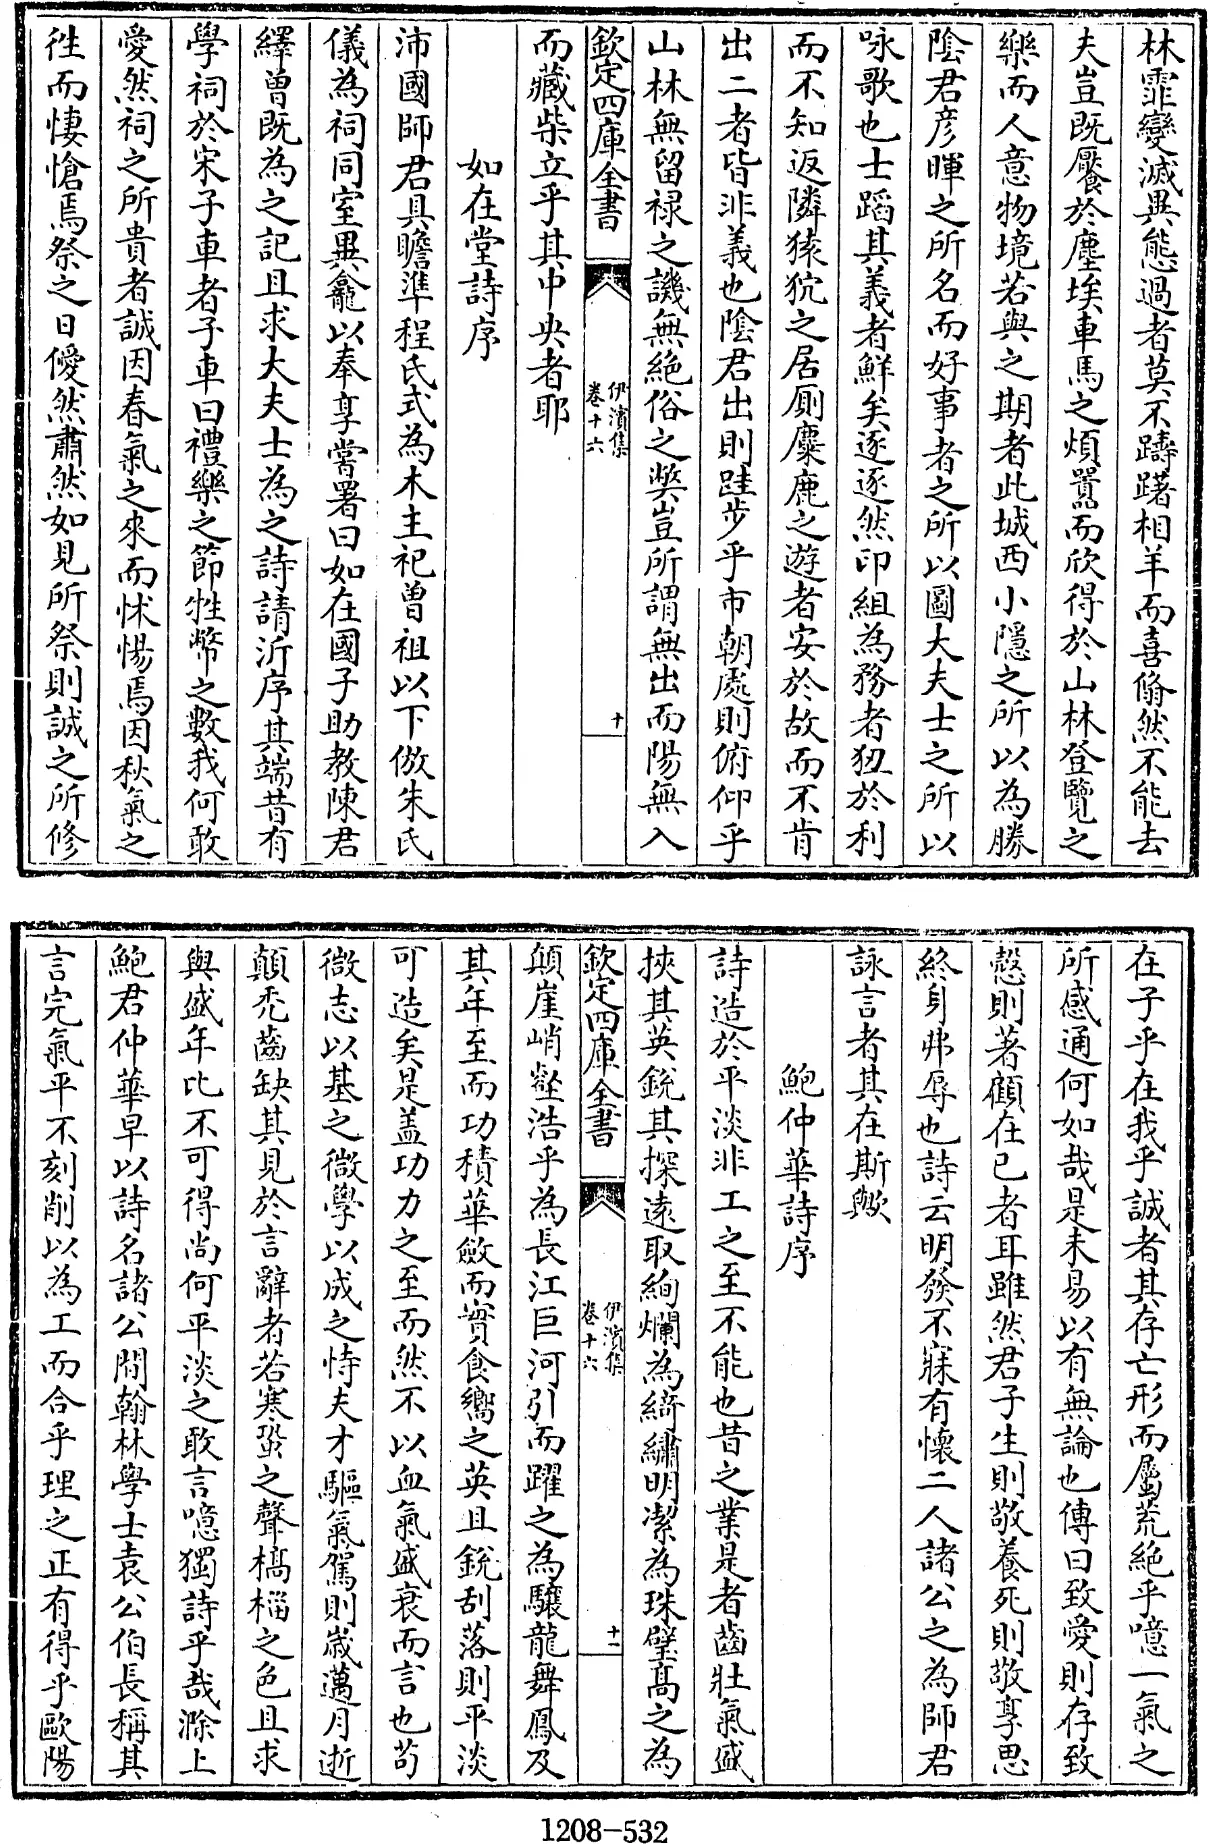 林霏變滅異態過者莫不躊躇相羊而喜翛然不能去
夫豈既饜於塵埃車馬之煩囂而欣得於山林登覽之
樂而人意物境若與之期者此城西小隱之所以為勝
陰君彦暉之所名而好事者之所以圖大夫士之所以
咏歌也士蹈其義者鮮矣逐逐然印組為務者狃於利
而不知返隣猿狖之居厠麋鹿之遊者安於故而不肯
出二者皆非義也陰君出則跬步乎市朝處則俯仰乎
山林無留禄之譏無絶俗之弊豈所謂無出而陽無入
欽定四庫全書
伊濱集
卷十六
十
而藏柴立乎其中央者耶
如在堂詩序
沛國師君具瞻準程氏式為木主祀曽祖以下倣朱氏
儀為祠同室異龕以奉享嘗署曰如在國子助教陳君
繹曽既為之記且求大夫士為之詩請沂序其端昔有
學祠於宋子車者子車曰禮樂之節牲幣之數我何敢
愛然祠之所貴者誠因春氣之來而怵惕焉因秋氣之
徃而悽愴焉祭之日僾然肅然如見所祭則誠之所修
在子乎在我乎誠者其存亡形而屬荒絶乎噫一氣之
所感通何如哉是未易以有無論也傳曰致愛則存致
慤則著顧在已者耳雖然君子生則敬養死則敬享思
終身弗辱也詩云明發不寐有懐二人諸公之為師君
詠言者其在斯歟
鮑仲華詩序
詩造於平淡非工之至不能也昔之業是者齒壯氣盛
挾其英鋭其探遠取絢爛為綺繡明潔為珠璧髙之為
欽定四庫全書
伊濱集
卷十六
十一
顛崖峭壑浩乎為長江巨河引而躍之為驤龍舞鳳及
其年至而功積華斂而實食嚮之英且鋭刮落則平淡
可造矣是盖功力之至而然不以血氣盛衰而言也苟
微志以基之微學以成之恃夫才驅氣駕則嵗邁月逝
顛秃齒缺其見於言辭者若寒蛩之聲槁梧之色且求
與盛年比不可得尚何平淡之敢言噫獨詩乎哉滁上
鮑君仲華早以詩名諸公間翰林學士袁公伯長稱其
言完氣平不刻削以為工而合乎理之正有得乎歐陽
1208-532